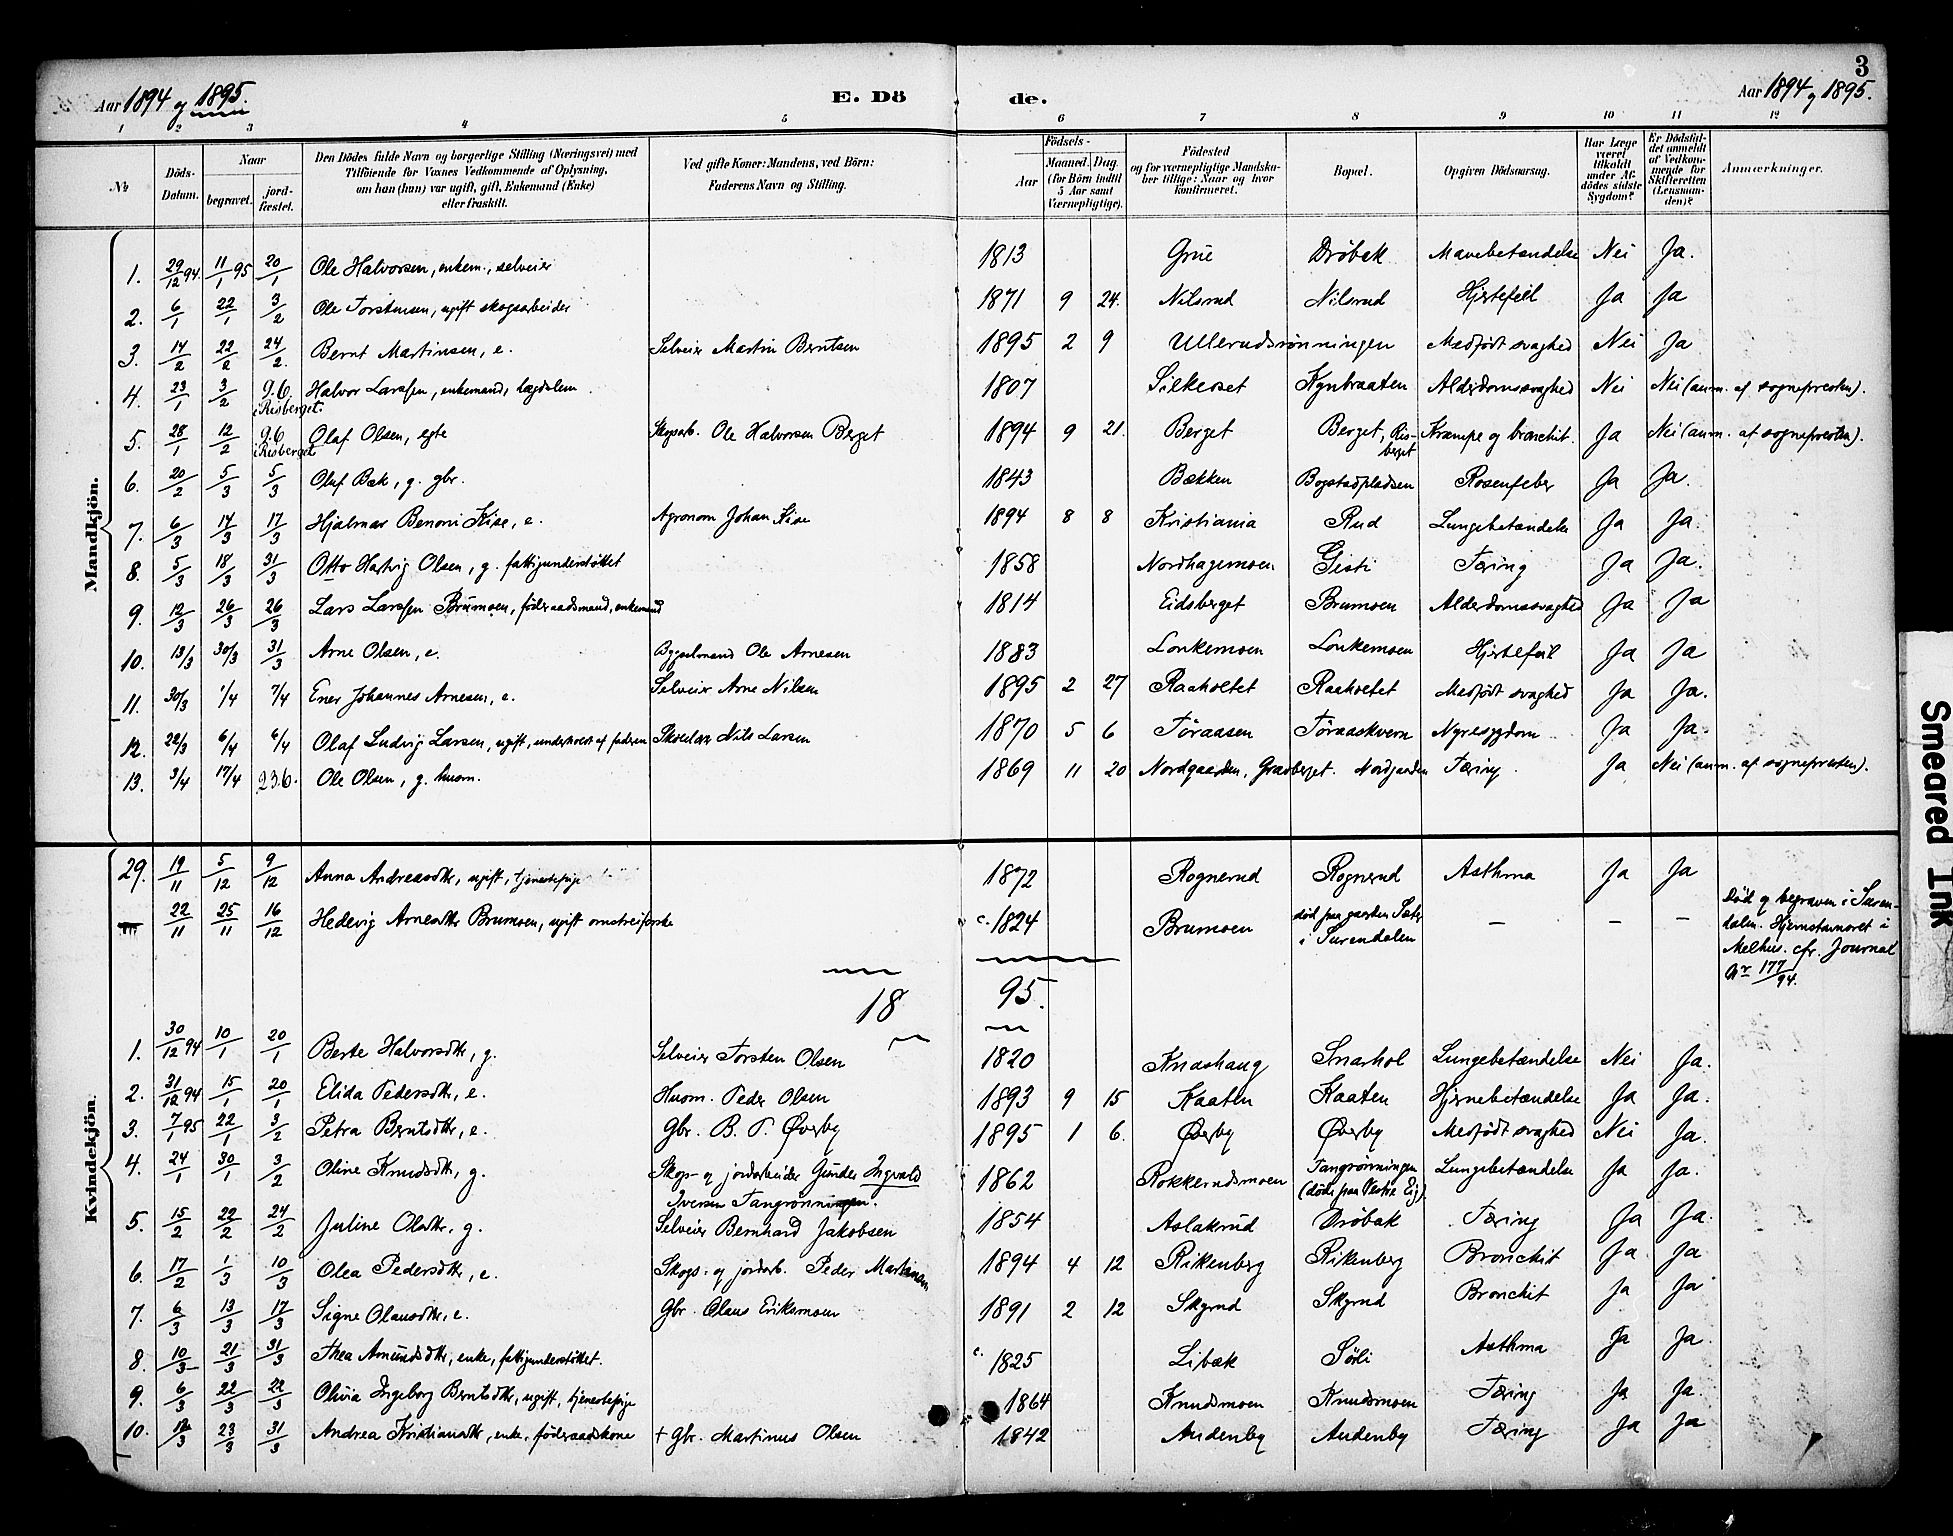 3
Aar 1894 og 1895.
E. Dö de.
Aar 1894 og 1895.
1 2 3 4 5 6 7 8 9 10 11 12
№ Döds-Datum. Naar begravet. jord-fæstet. Den Dödes fulde Navn og borgerlige Stilling (Næringsvei) med Tilföiende for Voxnes Vedkommende af Oplysning, om han (hun) var ugift, gift, Enkemand (Enke) eller fraskilt. Ved gifte Koner: Mandens, ved Börn: Faderens Navn og Stilling. Födsels- Aar Maaned. Dag. (for Börn indtil 5 Aar samt Værnepligtige). Födested og for værnepligtige Mandskaber tillige: Naar og hvor konfirmeret. Bopæl. Opgiven Dödsaarsag. Har Læge været tilkaldt under Afdödes sidste Sygdom? Er Dödsfaldet anmeldt af Vedkommende for Skifteretten (Lensmanden)? Anmærkninger.
Mandkjön.
1. 29/12 94. 11/1 95 20/1 Ole Halvorsen, enkem., selveier 1813 Grue Dröbak Mavebetændelse Nei Ja.
2. 6/1 22/1 3/2 Ole Torstensen, ugift skogsarbeider 1871 9 24. Nilsrud Nilsrud Hjertefeil Ja Ja
3. 14/2 22/2 24/2. Bernt Martinsen, e. Selveier Martin Berntsen 1895 2 9 Ullerudsrönningen Medfödt svaghed Nei Ja
4. 23/1 3/2 9.6 i Risberget. Halvor Larssen, enkemand, lægdslem 1807 Silkeset Kynbraaten Alderdomssvaghed Nei Nei (anm. af sognepresten).
5. 28/1 12/2 9.6 i Risberget Olaf Olsen, egte Skogsarb. Ole Halvorsen Berget 1894 9 21. Berget Berget, Risberget Krampe og bronchit. Ja Nei (anm. af sognepresten).
6. 20/2 5/3 5/3 Oluf Bak, g. gbr. 1843 Bækken Bogstadpladsen Rosenfeber Ja Ja.
7. 6/3 14/3 17/3 Hjalmar Benoni Kise, e. Agronom Johan Kise 1894 8 8 Kristiania Rud Lungebetændelse Ja Ja.
8. 5/3 18/3 31/3 Otto Hartvig Olsen, g. fattigunderstöttet 1858 Nordhagemoen Gisti Tæring Ja Ja.
9. 12/3 26/3 26/3 Lars Larssen Brumoen, föderaadsmand, enkemand 1814 Eidsberget Brumoen Alderdomssvaghed Ja Ja
10. 13/3 30/3 31/3 Arne Olsen, e. Bygselmand Ole Arnesen 1883 Lonkemoen Lonkemoen Hjertefeil Ja Ja
11. 30/3 1/4 7/4 Ener Johannes Arnesen, e. Selveier Arne Nilsen 1895 2 27 Raaholtet Raaholtet Medfödt svaghed Ja Ja.
12. 22/3 6/4 6/4 Olaf Ludvig Larsen, ugift, underholdt af faderen Skolelær Nils Larsen 1870 5 6 Töraasen Töraaskvern Nyresygdom Ja Ja.
13. 3/4 17/4 23.6. Ole Olsen, g. husm. 1869 11 20 Nordgaarden, Gravberget. Nordgaarden Tæring. Ja Nei (anm. af sognepresten).
Kvindekjön.
29. 19/11 5/12 9/12 Anna Andreasdtr, ugift, tjenestepige 1872 Rognerud Rognerud Asthma Ja Ja
22/11 25/11 16/12 Hedevig Arnesdtr Brumoen, ugift omstreiferske c. 1824 Brumoen död paa gaarden Sæter i Surendalen – – – Död og begraven i Surendalen. Hjemstavnsret i Melhus. cfr. Journal Nr 177/94.
18 95.
1. 30/12 94 10/1 20/1 Berte Halvorsdtr, g. Selveier Torsten Olsen 1820 Knashaug Snarhol Lungebetændelse Nei Ja.
2. 31/12 94 15/1 20/1 Elida Pedersdtr, e. Husm. Peder Olsen 1893 9 15 Kaaten Kaaten Hjernebetændelse Ja Ja.
3. 7/1 95 22/1 3/2 Petra Berntsdtr, e. Gbr. B. P. Överby 1895 1 6. Överby Överby Medfödt svaghed Nei Ja.
4. 24/1 30/1 3/2 Oline Knudsdtr, g. Skogs- og jordarbeider Gunder Ingvald Iversen Tangrönningen. 1862 Rokkerudsmoen Tangrönningen (döde paa Vestre Eig) Lungebetændelse Ja Ja.
5. 15/2 22/2 24/2 Juline Olsdtr, g. Selveier Bernhard Jakobsen 1854 Aslakrud Dröbak Tæring Ja Ja.
6. 17/2 1/3 10/3 Olea Pedersdtr, e. Skogs- og jordarb. Peder Martinsen 1894 4 12 Rikenberg Rikenberg Bronchit Ja Ja
7. 6/3 13/3 17/3 Signe Olausdtr, e. Gbr. Olaus Eriksmoen 1891 2 12 Skyrud Skyrud Bronchit Ja Ja
8. 10/3 21/3 31/3 Thea Amundsdtr, enke, fattigunderstöttet. c. 1825 Libæk Sörli Asthma Ja Ja.
9. 6/3 22/3 22/3 Olivia Ingeborg Berntsdtr, ugift, tjenestepige 1864 Knudsmoen Knudsmoen Tæring Ja Ja.
10. 12/3 23/3 31/3 Andrea Kristiansdtr, enke, föderaadskone + Gbr. Martinus Olsen 1842 Audenby Audenby Tæring Ja Ja
Smeared Ink